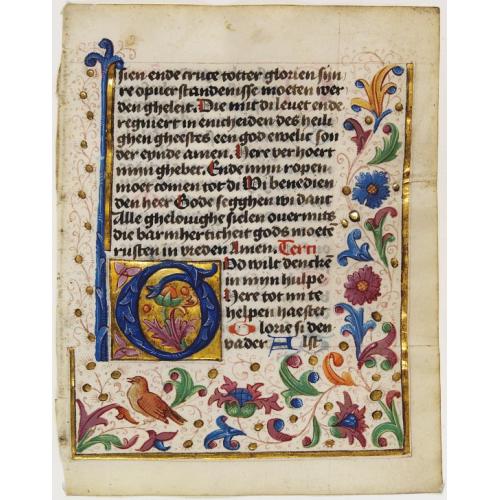 sien ende cruce totter glorien sijn
re opuerstandenisse moeten wer
den gheleit. Die mit di leuet ende
regniert in enicheiden des heili
ghen gheestes een god ewelic son
der eynde amen. Here verhoert
mijn ghebet. Ende mijn ropen
moet comen tot di Wi benedien
den heer Gode segghen wi danc
Alle ghelouighe sielen ouermits
die barmherticheit gods moete
rusten in vreden Amen. Terci
God wilt dencken
in mijn hulpe
Here tot mi te
helpen haester
Glorie si den
vader Alst